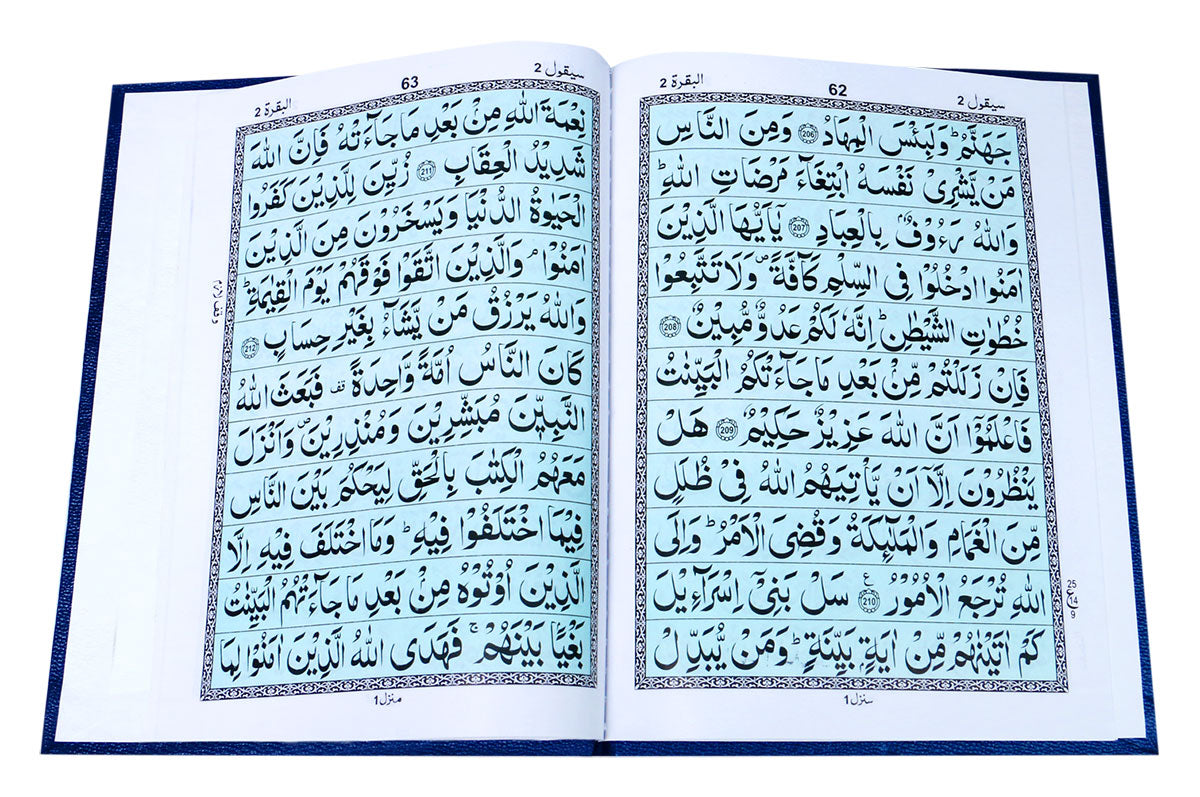 البقرة 2
62
سيقول 2
جَهَنَّمُ ؕ وَلَبِئْسَ الْمِهَادُ ﴿206﴾ وَمِنَ النَّاسِ
مَنْ يَّشْرِىْ نَفْسَهُ ابْتِغَآءَ مَرْضَاتِ اللّٰهِ ؕ
وَاللّٰهُ رَءُوْفٌۢ بِالْعِبَادِ ﴿207﴾ يٰۤاَيُّهَا الَّذِيْنَ
اٰمَنُوا ادْخُلُوْا فِى السِّلْمِ كَآفَّةً ۪ وَلَا تَتَّبِعُوْا
خُطُوٰتِ الشَّيْطٰنِ ؕ اِنَّهٗ لَكُمْ عَدُوٌّ مُّبِيْنٌ ﴿208﴾
فَاِنْ زَلَلْتُمْ مِّنْۢ بَعْدِ مَا جَآءَتْكُمُ الْبَيِّنٰتُ
فَاعْلَمُوْۤا اَنَّ اللّٰهَ عَزِيْزٌ حَكِيْمٌ ﴿209﴾ هَلْ
يَنْظُرُوْنَ اِلَّاۤ اَنْ يَّاْتِيَهُمُ اللّٰهُ فِىْ ظُلَلٍ
مِّنَ الْغَمَامِ وَالْمَلٰٓئِكَةُ وَقُضِىَ الْاَمْرُ ؕ وَاِلَى
اللّٰهِ تُرْجَعُ الْاُمُوْرُ ﴿210﴾ ع سَلْ بَنِىْۤ اِسْرَآءِيْلَ
كَمْ اٰتَيْنٰهُمْ مِّنْ اٰيَةٍۢ بَيِّنَةٍ ؕ وَمَنْ يُّبَدِّلْ
25
ع
14
9
منزل 1
سيقول 2
63
البقرة 2
نِعْمَةَ اللّٰهِ مِنْۢ بَعْدِ مَا جَآءَتْهُ فَاِنَّ اللّٰهَ
شَدِيْدُ الْعِقَابِ ﴿211﴾ زُيِّنَ لِلَّذِيْنَ كَفَرُوا
الْحَيٰوةُ الدُّنْيَا وَيَسْخَرُوْنَ مِنَ الَّذِيْنَ
اٰمَنُوْا ۘ وَالَّذِيْنَ اتَّقَوْا فَوْقَهُمْ يَوْمَ الْقِيٰمَةِ ؕ
وَاللّٰهُ يَرْزُقُ مَنْ يَّشَآءُ بِغَيْرِ حِسَابٍ ﴿212﴾
كَانَ النَّاسُ اُمَّةً وَّاحِدَةً قف فَبَعَثَ اللّٰهُ
النَّبِيّٖنَ مُبَشِّرِيْنَ وَمُنْذِرِيْنَ ۪ وَاَنْزَلَ
مَعَهُمُ الْكِتٰبَ بِالْحَقِّ لِيَحْكُمَ بَيْنَ النَّاسِ
فِيْمَا اخْتَلَفُوْا فِيْهِ ؕ وَمَا اخْتَلَفَ فِيْهِ اِلَّا
الَّذِيْنَ اُوْتُوْهُ مِنْۢ بَعْدِ مَا جَآءَتْهُمُ الْبَيِّنٰتُ
بَغْيًاۢ بَيْنَهُمْ ۚ فَهَدَى اللّٰهُ الَّذِيْنَ اٰمَنُوْا لِمَا
منزل 1